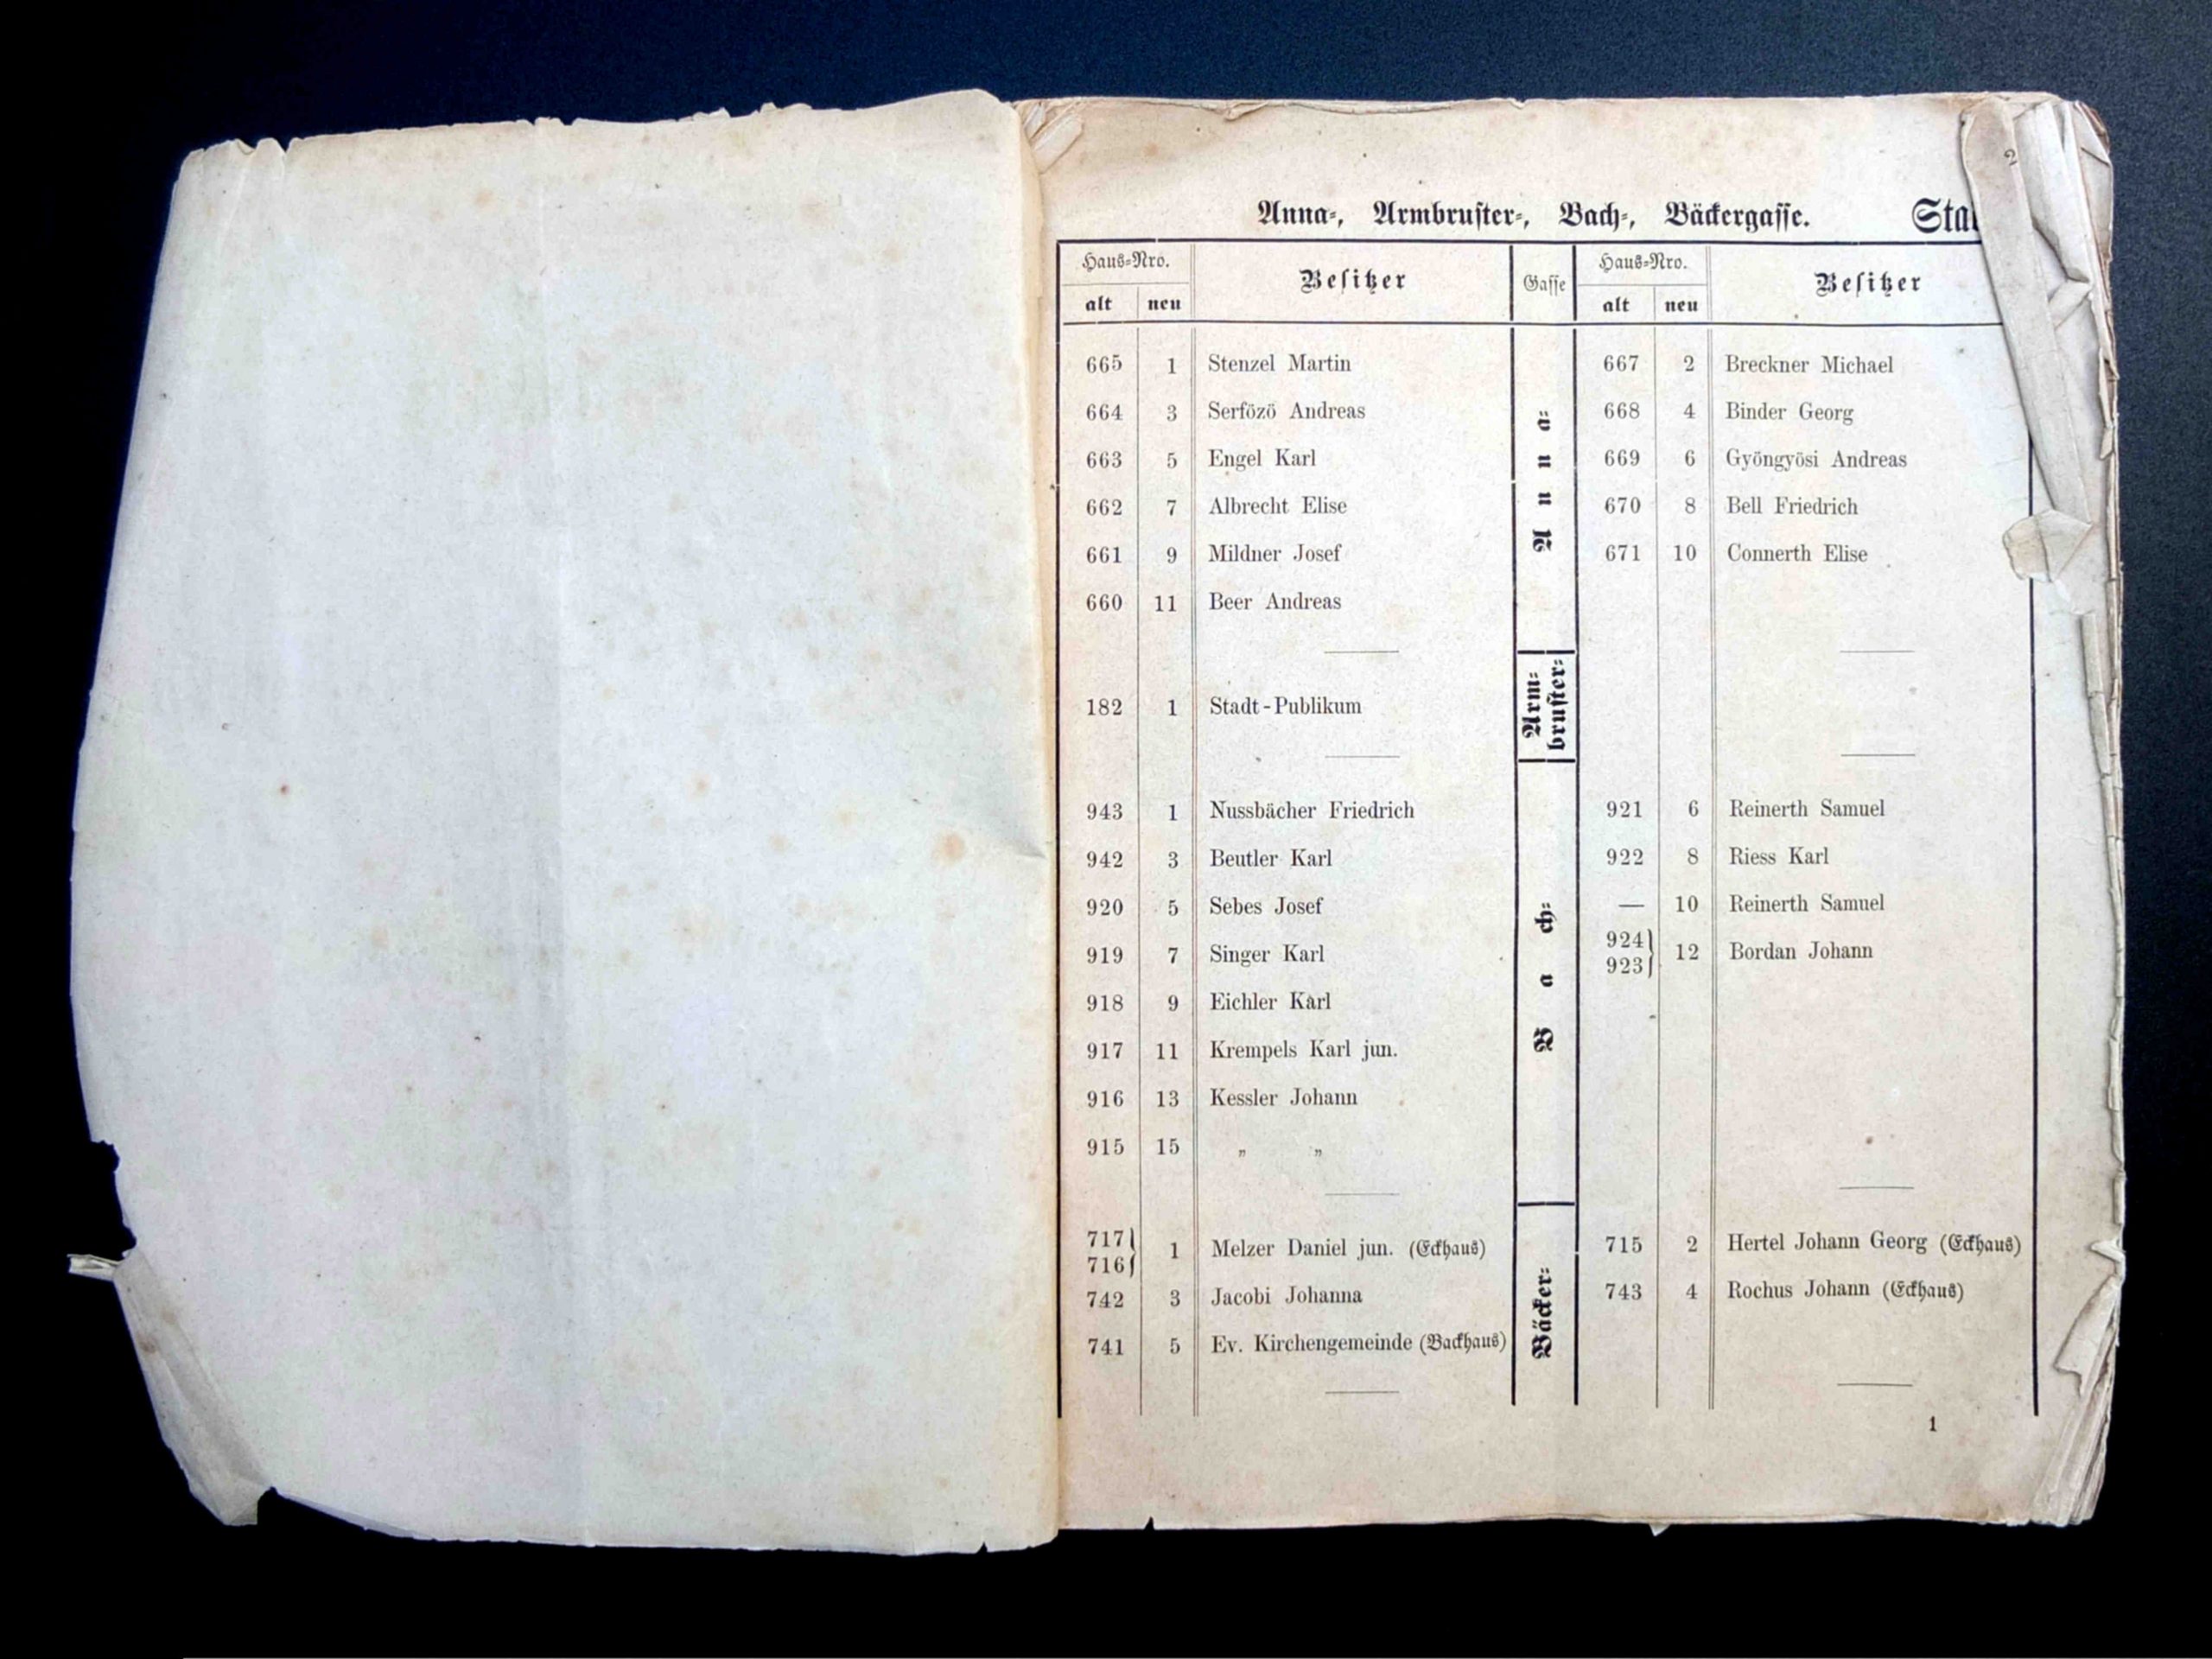 2
Anna-, Armbruster-, Bach-, Bäckergasse.
Haus-Nro. Besitzer Gasse Haus-Nro. Besitzer
alt neu alt neu
Anna-
665 1 Stenzel Martin 667 2 Breckner Michael
664 3 Serfözö Andreas 668 4 Binder Georg
663 5 Engel Karl 669 6 Gyöngyösi Andreas
662 7 Albrecht Elise 670 8 Bell Friedrich
661 9 Mildner Josef 671 10 Connerth Elise
660 11 Beer Andreas
Arm-
bruster-
182 1 Stadt-Publikum
Bach-
943 1 Nussbächer Friedrich 921 6 Reinerth Samuel
942 3 Beutler Karl 922 8 Riess Karl
920 5 Sebes Josef — 10 Reinerth Samuel
919 7 Singer Karl 924 923 } 12 Bordan Johann
918 9 Eichler Karl
917 11 Krempels Karl jun.
916 13 Kessler Johann
915 15 „ „
Bäcker-
717 716 } 1 Melzer Daniel jun. (Eckhaus) 715 2 Hertel Johann Georg (Eckhaus)
742 3 Jacobi Johanna 743 4 Rochus Johann (Eckhaus)
741 5 Ev. Kirchengemeinde (Backhaus)
1